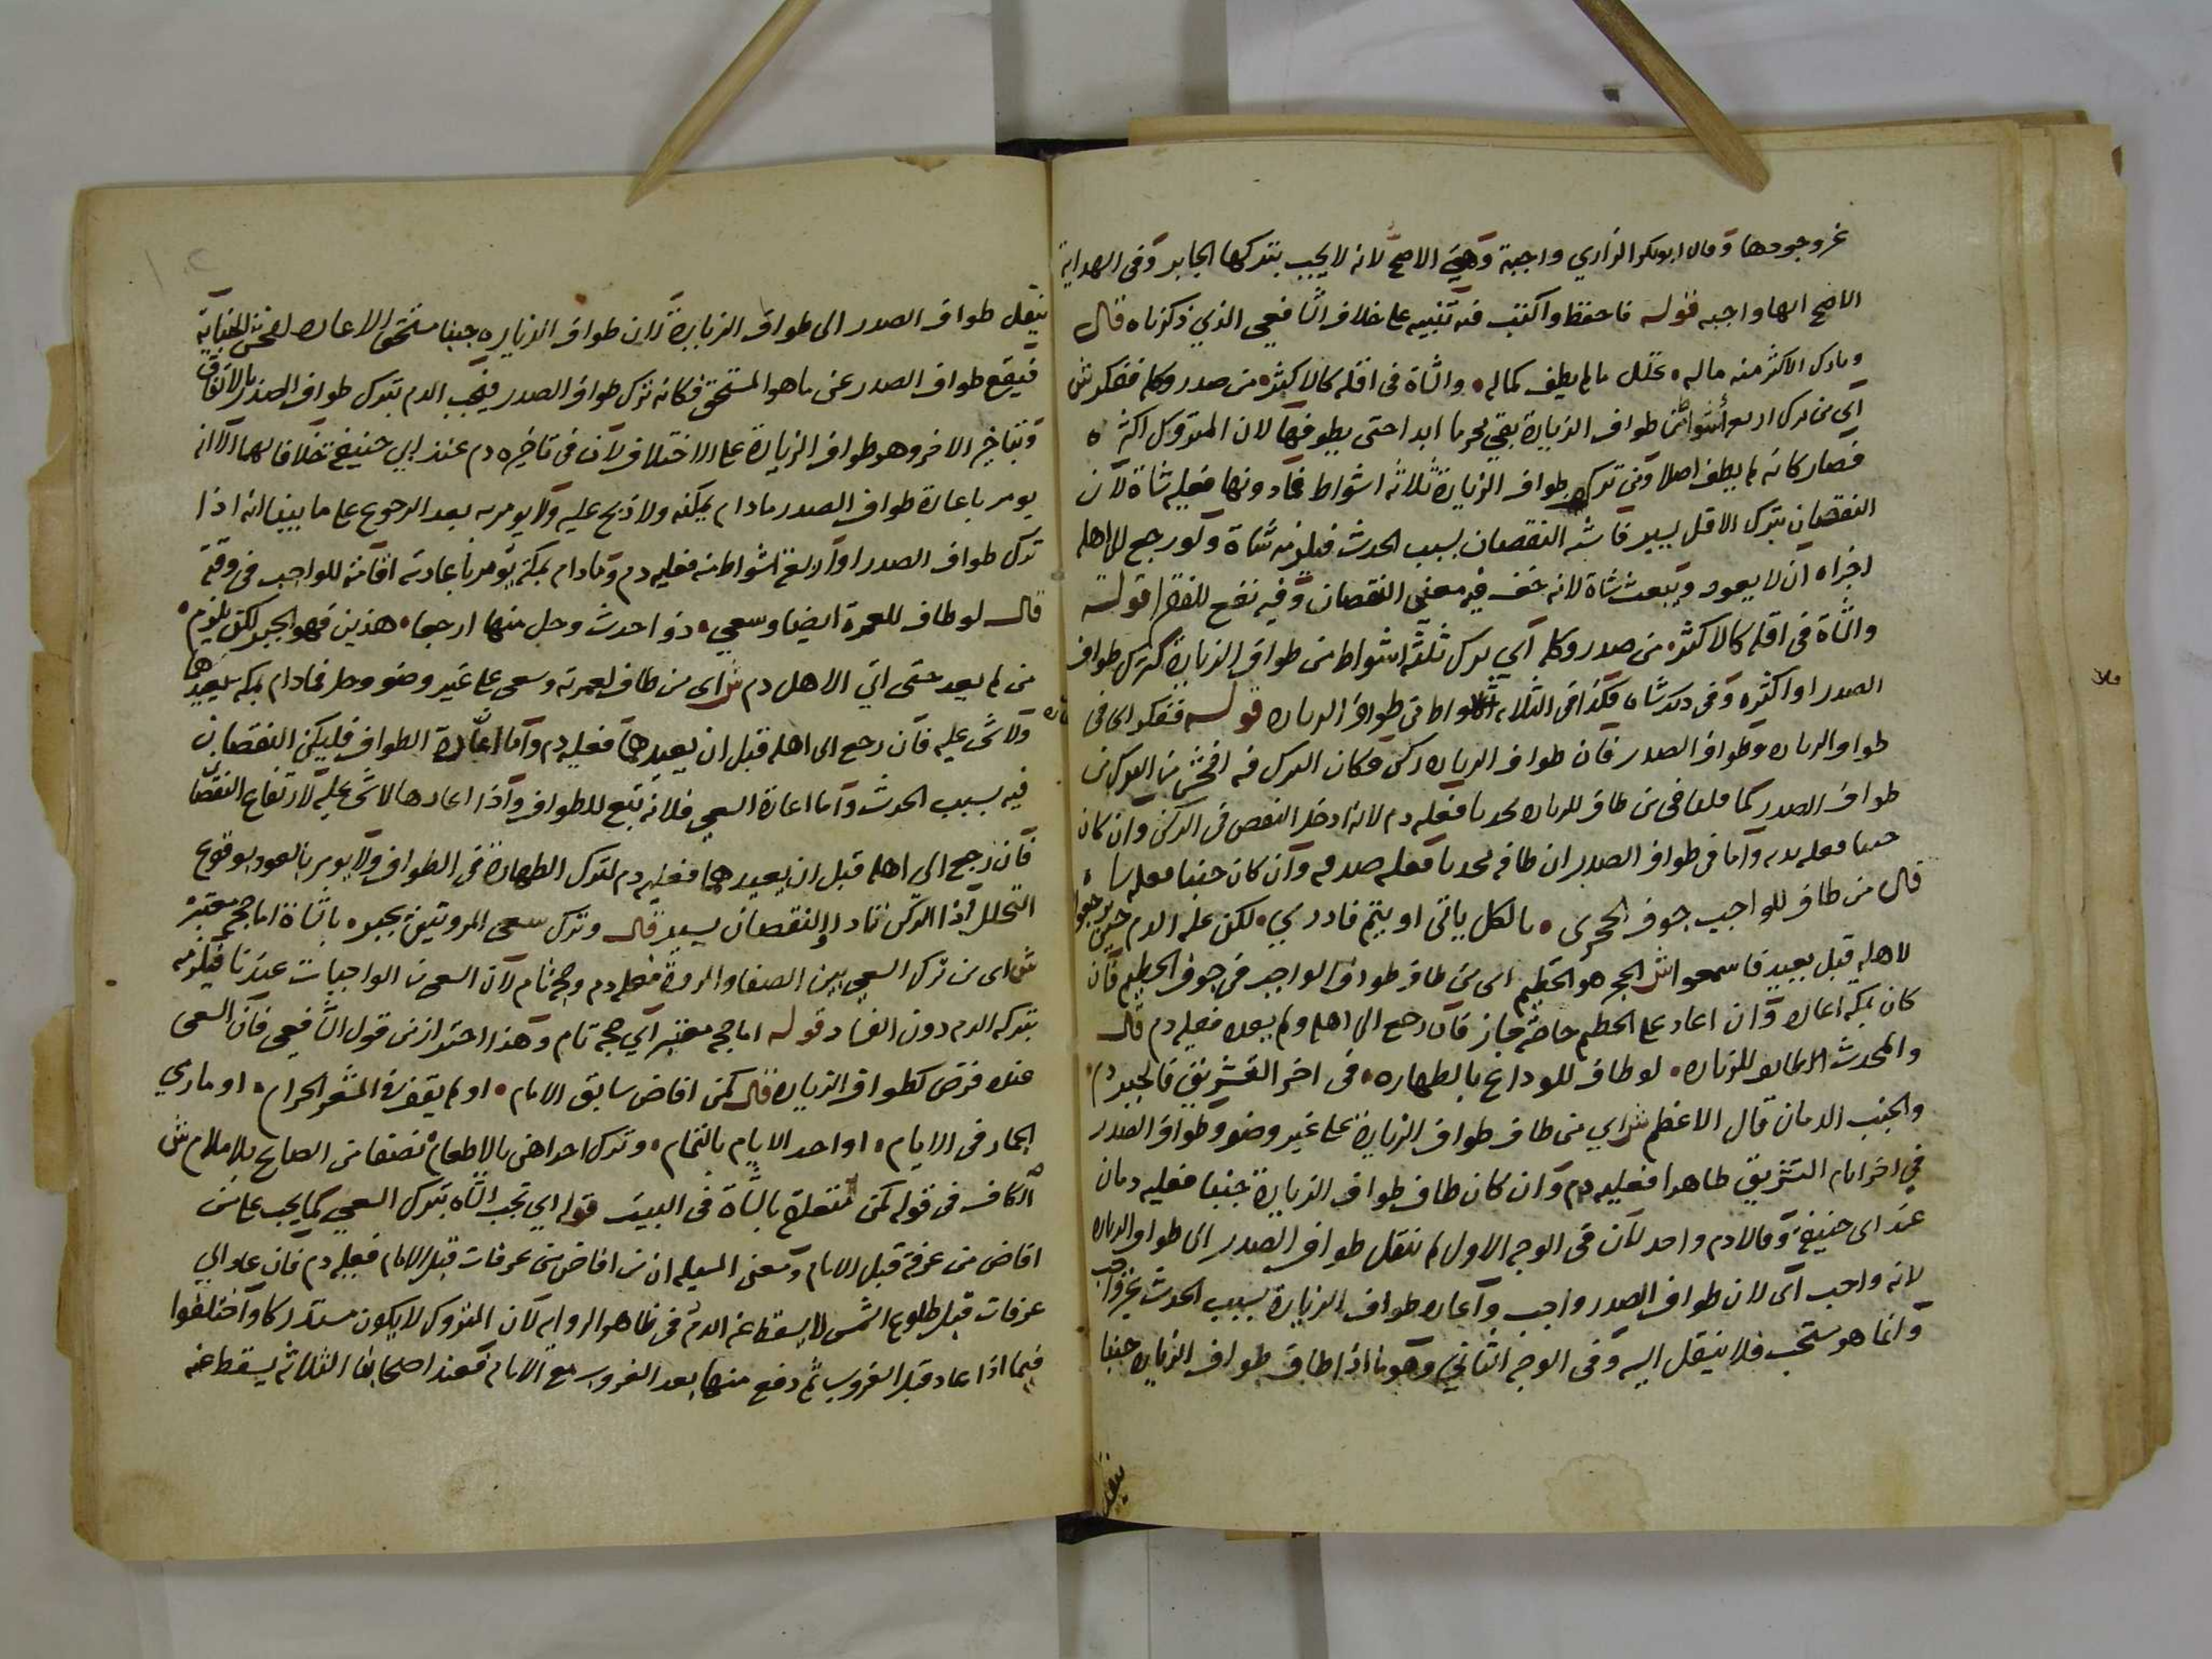 عن وجودها وقال ابوبكر الرازي واجبة وهي الاصح لانه لا يجب بتركها الجابر وفي الهداية
الاصح انها واجبه قوله فاحفظ واكتب فيه تنبيه على خلاف الشافعي الذي ذكرناه قال
وتارك الاكثر منه ماله • تحلل ما لم يطف كماله • والشاة في اقله كالاكثر • من صدر وكله ففكر ش
اي من ترك اربع اشواط من طواف الزيارة بقي محرما ابدا حتى يطوفها لان المتروك اكثره
فصار كانه لم يطف اصلا ومن ترك طواف الزيارة ثلاثة اشواط فما دونها فعليه شاة لان
النقصان بترك الاقل يسير فاشبه النقصان بسبب الحدث فيلزمه شاة ولو رجع الى اهله
اجزاه ان لا يعود ويبعث شاة لانه خف فيه معنى النقصان وفيه نفع للفقرا قوله
والشاة في اقله كالاكثر من صدر وكله اي ترك ثلثة اشواط من طواف الزيارة كترك طواف
الصدر او اكثره وفي ذلك شاه فكذا في الثلاثه اشواط من طواف الزياره قوله ففكر اي في
طواف الزياره وطواف الصدر فان طواف الزياره ركن فكان الترك فيه افحش من الترك في
طواف الصدر كما قلنا في من طاف للزياره محدثا فعليه دم لانه ادخل النقص في الركن وان كان
جنبا فعليه بدنه واما في طواف الصدر ان طافه محدثا فعليه صدقه وان كان جنبا فعليه شاة
قال من طاف للواجب جوف الحجر • بالكل ياتي او يتم فادر ي • لكن عليه الدم حين يرجعوا
لاهليه قبل بعيد فاسمعوا ش الحجر هو الحطيم اي من طاف طواف الواجب في جوف الحطيم فان
كان بمكه اعاده وان اعاد على الحطيم خاصة جاز فان رجع الى اهله ولم يعده فعليه دم قال
والمحدث الطائف للزياره • لو طاف للوداع بالطهاره • في اخر التشريق فالجبر دم •
والجنب الدمان قال الاعظم ش اي من طاف طواف الزيارة على غير وضو وطواف الصدر
في اخر ايام التشريق طاهرا فعليه دم وان كان طاف طواف الزيارة جنبا فعليه دمان
عند ابي حنيفة وقالا دم واحد لان في الوجه الاول لم ننقل طواف الصدر الى طواف الزياره
لانه واجب اي لان طواف الصدر واجب واعاده طواف الزيارة بسبب الحدث غير واجب
وانما هو مستحب فلا ينقل اليه وفي الوجه الثاني وهو ما اذا طاف طواف الزياره جنبا
ينقل
ينقل طواف الصدر الى طواف الزيارة لان طواف الزياره جنبا مستحق الاعاده لفحش الجنابة
فيقع طواف الصدر عن ما هو المستحق فكانه ترك طواف الصدر فيجب الدم بترك طواف الصدر بالاتفاق
وبتاخير الاخر وهو طواف الزيارة على الاختلاف لان في تاخيره دم عند ابي حنيفة خلافا لهما الا انه
يومر باعادة طواف الصدر مادام بمكة ولا ذبح عليه ولا يومر به بعد الرجوع على ما بينا انه اذا
ترك طواف الصدر او اربعة اشواط منه فعليه دم ومادام بمكة يومر باعادته اقامة للواجب في وقته
قال لو طاف للعمرة ايضا وسعى • ذو احدث وحل منها ارجعا • هذين فهو الجبر لكن يلزم •
من لم يعد حتى اتى الاهل دم ش اى من طاف لعمرته وسعى على غير وضو وحل فمادام بمكه يعيدها
ولا شى عليه فان رجع الى اهله قبل ان يعيدهما فعليه دم واما اعادة الطواف فليكن النقصان
فيه بسبب الحدث واما اعادة السعي فلانه تبع للطواف واذا اعادها لا شي عليه لارتفاع النقصان
فان رجع الى اهله قبل ان يعيدهما فعليه دم لترك الطهارة في الطواف ولا يومر بالعود بوقوع
التحلل اذا الركن تادا والنقصان يسير قال وترك سعي المروتين يجبره بالشاة اما حجه معتبر
ش اى من ترك السعي بين الصفا والمروة فعليه دم وحجه تام لان السعي من الواجبات عندنا فيلزمه
بتركه الدم دون الفساد قوله اما حجه معتبر اي حجه تام وهذا احتراز من قول الشافعي فان السعى
عنده فرض كطواف الزياره قال كمن افاض سابق الامام • او لم يقف في المشعر الحرام • او ما رمي
الجمار في الايام • او احد الايام بالتمام • وترك احداهن بالاطعام نصفا من الصاع بلا ملام ش
الكاف في قوله كمن متعلقة بالشاة في البيت قوله اي تجب الشاه بترك السعي كما يجب على من
افاض من عرفة قبل الامام ومعنى المسيله ان من افاض من عرفات قبل الامام فعليه دم فان عاد الى
عرفات قبل طلوع الشمس لا يسقط عنه الدم في ظاهر الروايه لان المتروك لا يكون مستدركا واختلفوا
فيما اذا عاد قبل الغروب ثم دفع منها بعد الغروب مع الامام فعند اصحابنا الثلاثه يسقط عنه